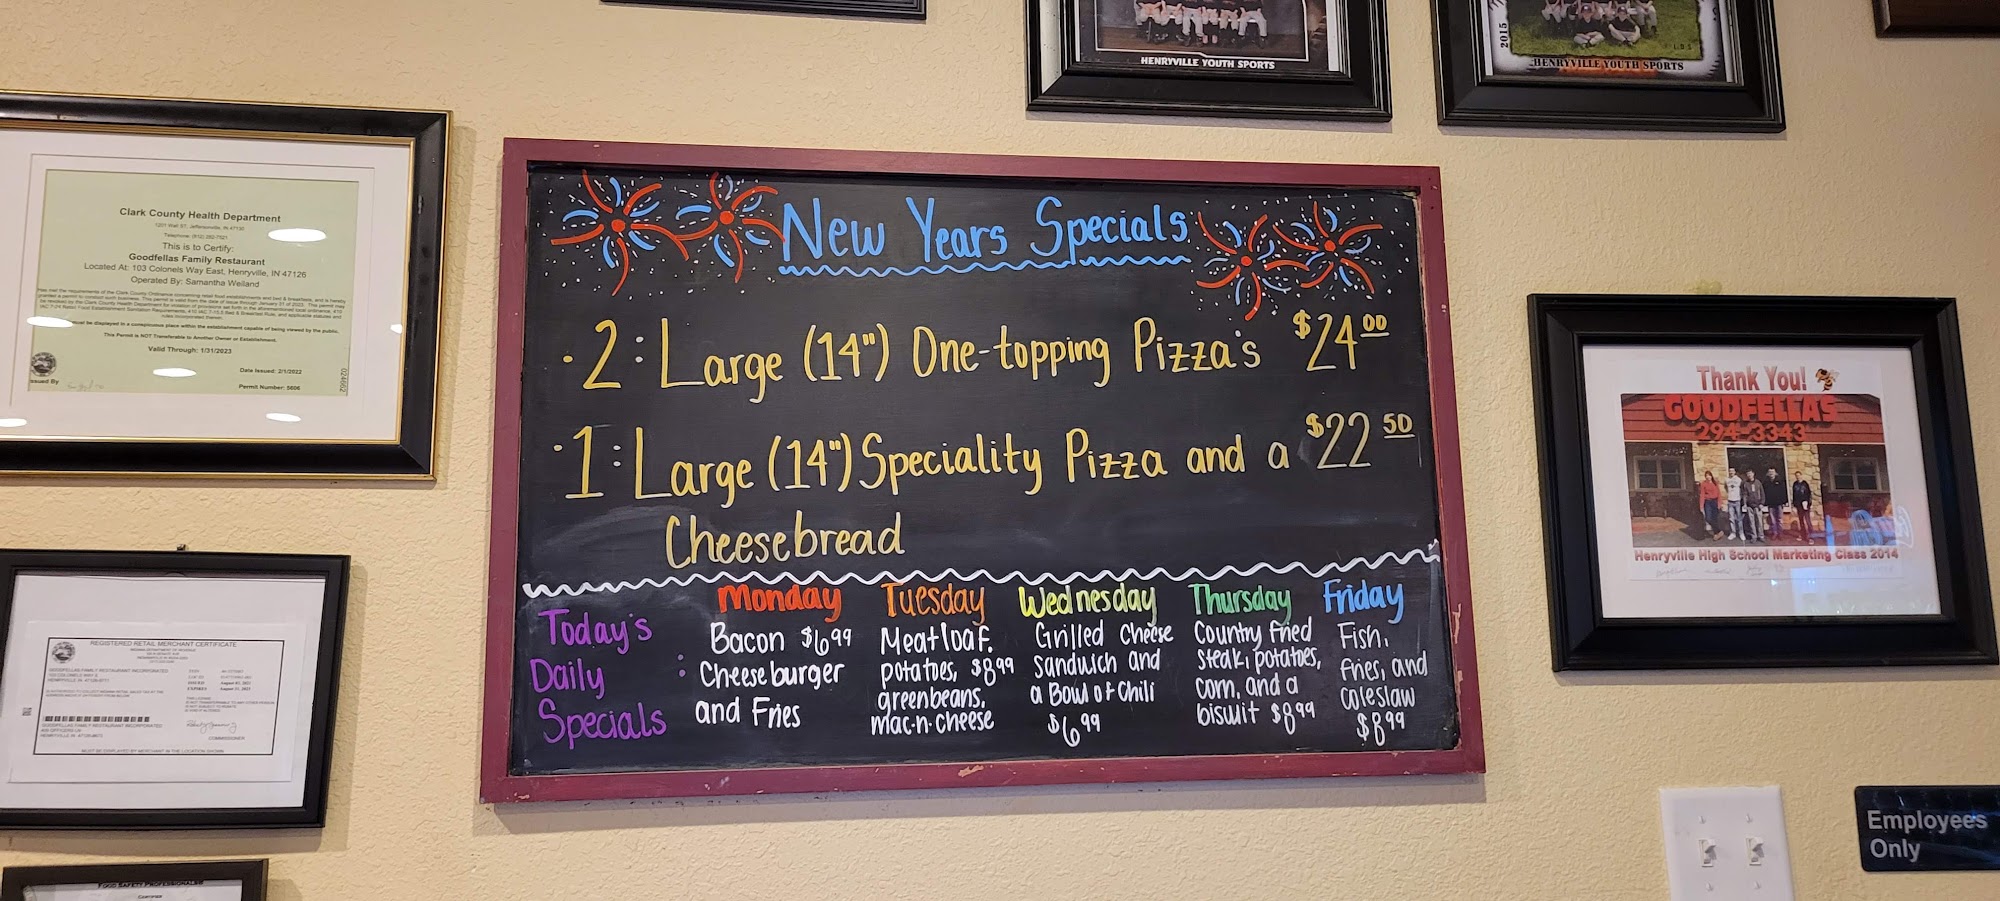 HENRYVILLE YOUTH SPORTS
2015
HENRYVILLE YOUTH SPORTS
Clark County Health Department
This is to Certify:
Goodfellas Family Restaurant
Located At: 103 Colonels Way East, Henryville, IN 47126
Operated By: Samantha Weiland
This Permit is NOT Transferable to Another Owner or Establishment.
Valid Through: 1/31/2023
Date Issued: 2/1/2022
Issued By
Permit Number: 5606
024662
New Years Specials
· 2: Large (14") One-topping Pizza's $24 00
· 1: Large (14") Speciality Pizza and a $22 50
Cheesebread
Today's
Daily :
Specials
Monday
Bacon $6.99
Cheeseburger
and Fries
Tuesday
Meatloaf.
potatoes, $8 99
greenbeans.
mac-n-cheese
Wednesday
Grilled Cheese
Sandwich and
a Bowl of Chili
$6.99
Thursday
Country fried
steak, potatoes,
corn, and a
biscuit $8 99
Friday
Fish,
Fries, and
coleslaw
$8 99
Thank You!
GOODFELLAS
294-3343
Henryville High School Marketing Class 2014
REGISTERED RETAIL MERCHANT CERTIFICATE
GOODFELLAS FAMILY RESTAURANT INCORPORATED
MUST BE DISPLAYED BY MERCHANT IN THE LOCATION SHOWN
Employees
Only